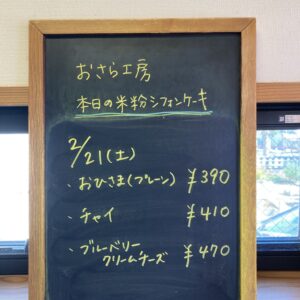 おさら工房
本日の米粉シフォンケーキ
2/21(土)
・おひさま(プレーン) ¥390
・チャイ ¥410
・ブルーベリー
クリームチーズ ¥470